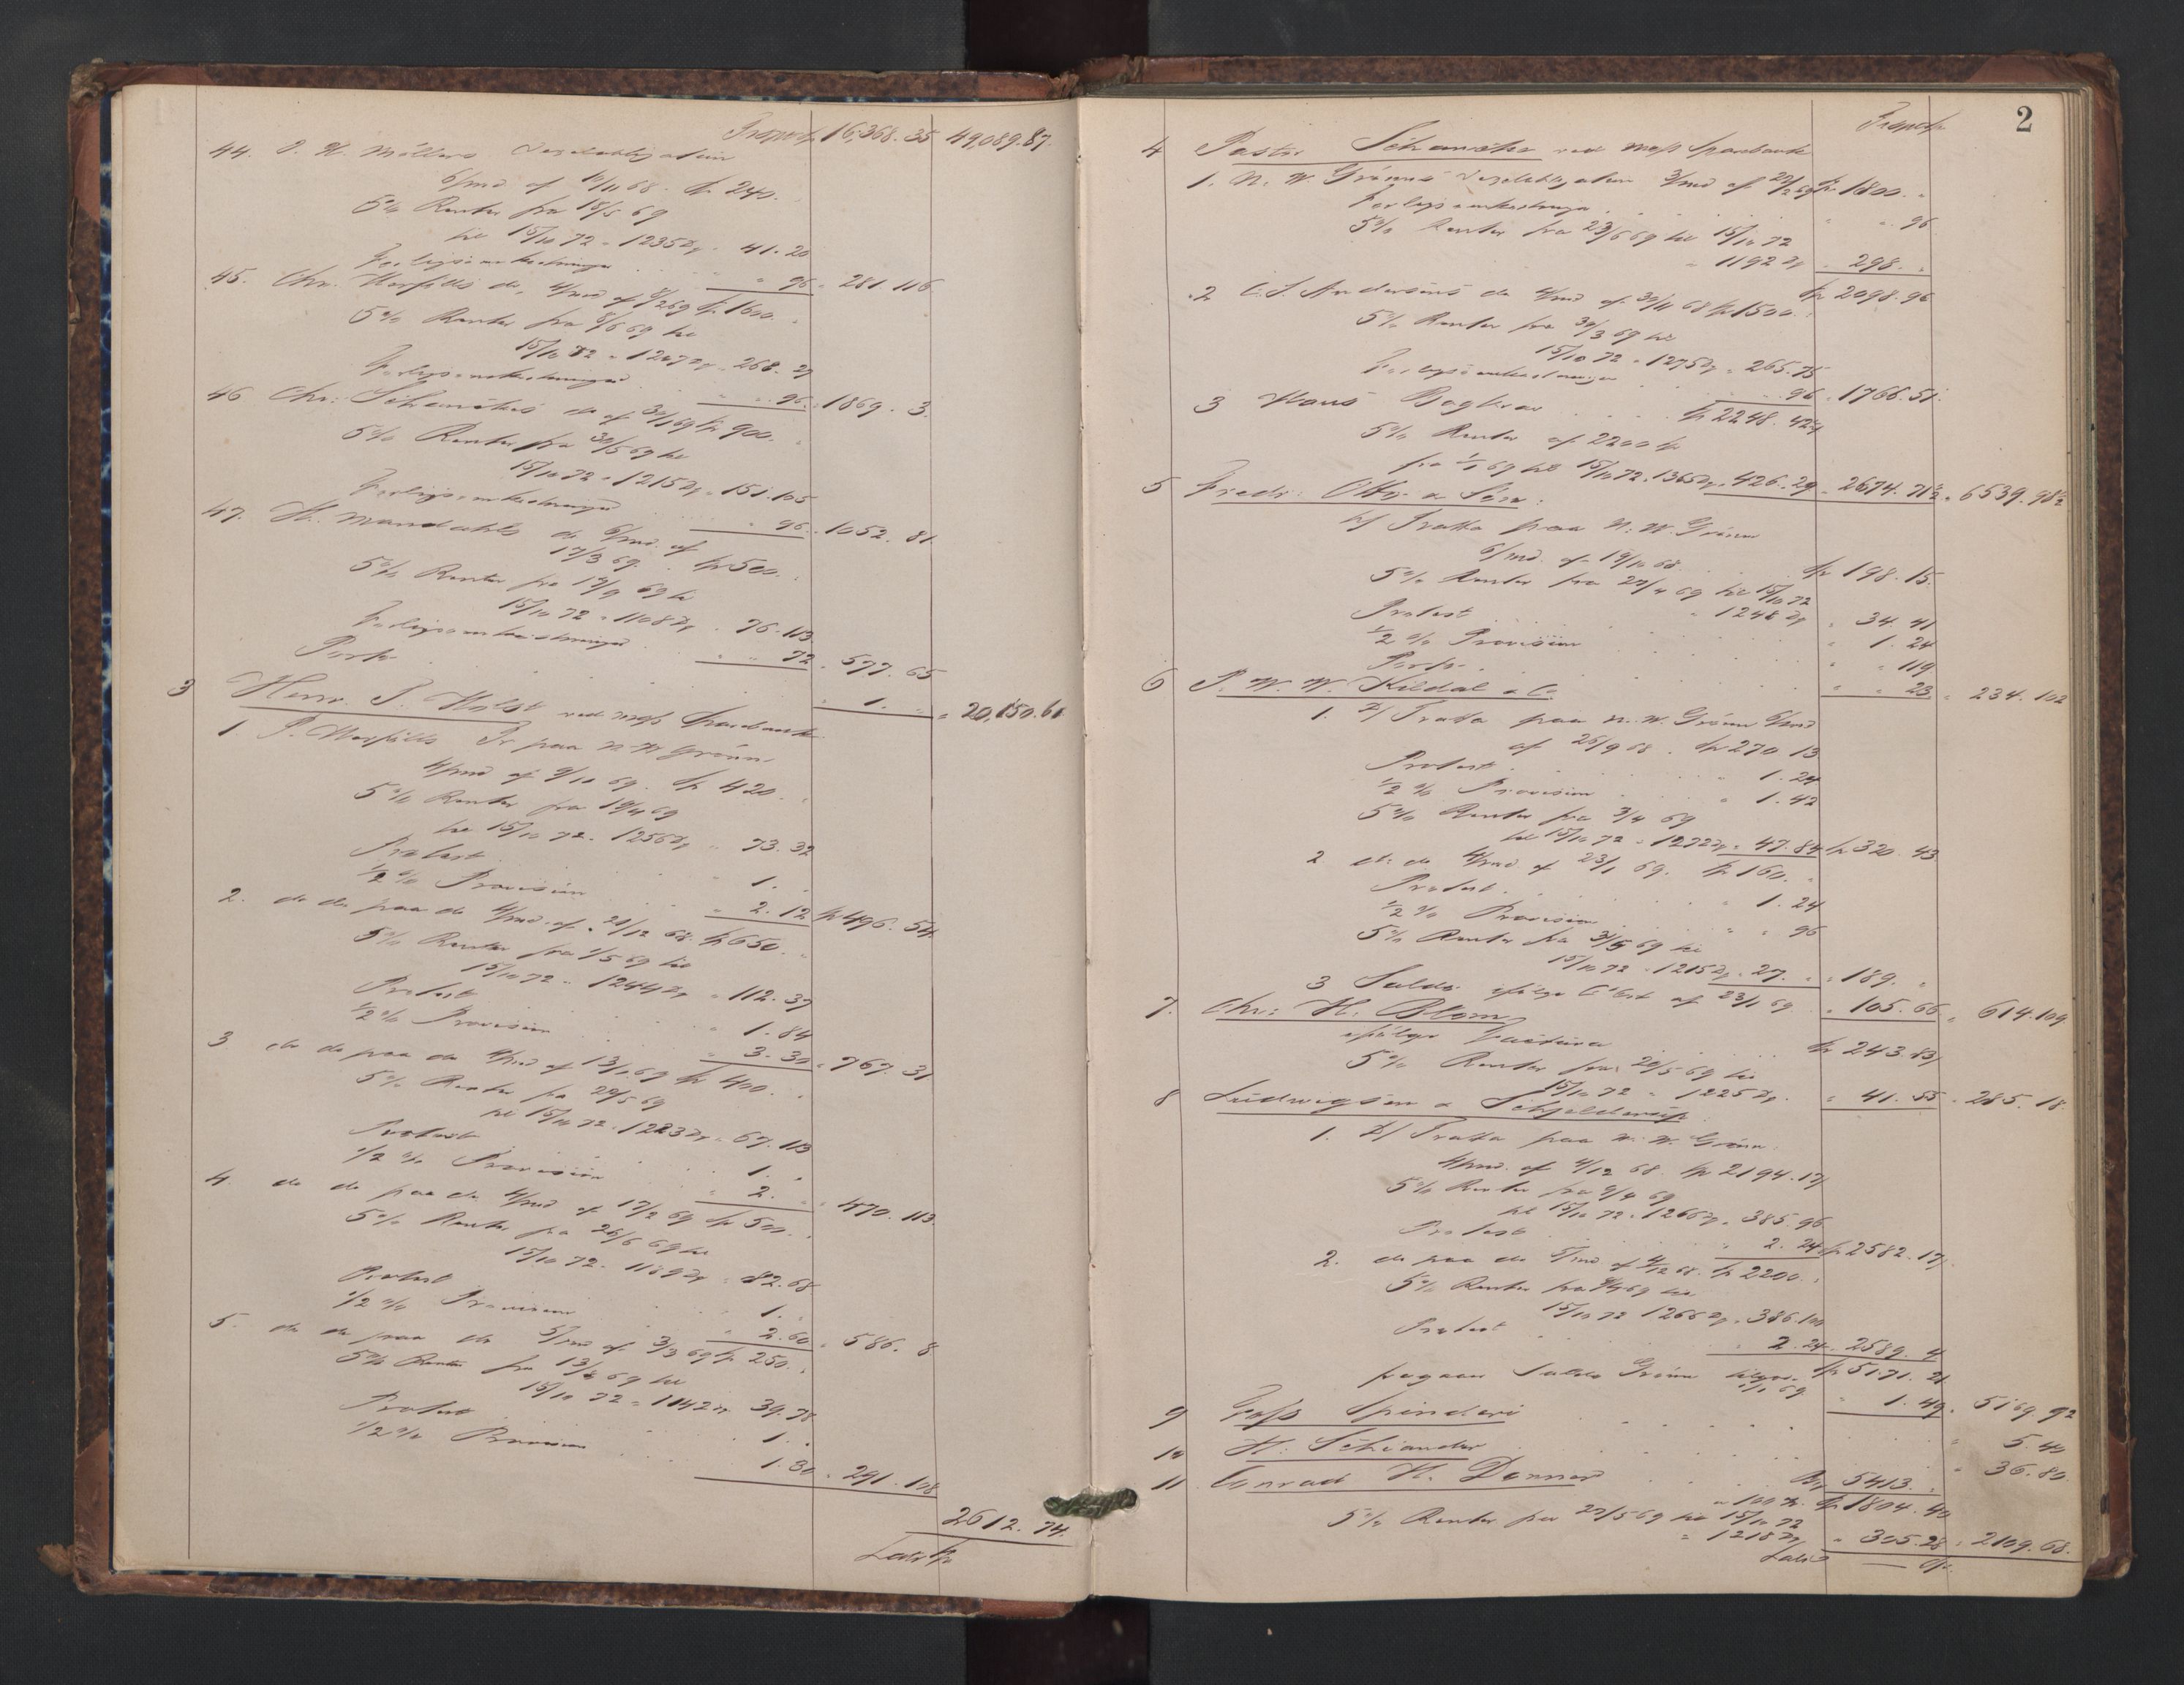 Transport 16,368. 35 49,089. 87.
44. P. H. Möllers Vexelobligation
6/md af 18/11 68. Sp 240. "
5% Renter fra 18/5 69
til 15/10 72 = 1235 Dg " 41. 20
Forligsomkostninger " " 96 " 281. 116
45. Chr. do, 4/md af 8/2 69 Sp 1600. "
5% Renter fra 8/6 69 til
15/10 72 = 1207 Dg " 268. 27
Forligsomkostninger " " 96 " 1869. 3.
46 Chr: Schanches do af 30/1 69 Sp 900. "
5% Renter fra 30/5 69 til
15/10 72 = 1215 Dg " 151. 105
Forligsomkostninger " 96 " 1052. 81
47. H. Mandahls do 6/md. af
17/3 69. Sp 500. "
5% Renter fra 17/9 69 til
15/10 72 = 1108 Dg " 76. 113
Forligsomkostninger " " 72 " 577. 65
Porto " 1. " " 20,150. 61
3 Herr J. Holst ved Sparebank
1 P. Tr paa N. W. Grönn
4/md af 9/10 69. Sp 420. "
5% Renter fra 19/4 69
til 15/10 72. 1256 Dg " 73. 32
Protest " 1. "
1/2 % Provision " 2. 12 Sp 496. 54.
2. do do paa do 4/md. af 21/12 68. Sp 650. "
5% Renter fra 1/5 69 til
15/10 72 " 1244 Dg " 112. 37
Protest " 1. 84
1/2 % Provision " 3. 30 " 767. 31
3 do do paa do 4/md af 13/1 69 Sp 400. "
5% Renter fra 22/5 69
til 15/10 72 = 1223 Dg " 67. 113
Protest 1. "
1/2 % Provision " 2. " " 470. 113
4. do do paa do 4/md af 17/2 69 Sp 500. "
5% Renter fra 26/6 69 til
15/10 72. 1189 Dg " 82. 68
Protest 1. "
1/2 % Provision " 2. 60 " 586. 8
5. do do paa do 5/md af 3/3 69 Sp 250. "
5% Renter fra 13/8 69 til
15/10 72 = 1142 Dg 39. 78
Protest 1. "
1/2 % Provision 1. 30 " 291. 108
2612. 74.
Latr Sp
2
Transp Sp
4 Pastor Schanche ved Sparebank
1. N. W. Grönns Vexelobligation 3/md af 22/2 69 Sp 1800. "
Forligsomkostninger " " 96
5% Renter fra 23/6 69 til 15/10 72
= 1192 Dg " 298. "
Sp 2098. 96
2 C. S. Andersens do 4/md af 30/11 68 Sp 1500. "
5% Renter fra 30/3 69 til
15/10 72 = 1275 Dg " 265. 75
Forligsomkostninger 96 " 1766. 51.
3 Hans Sp 2248. 42 1/2
5% Renter af 2200 Sp
fra 1/1 69 til 15/10 72. 1365 Dg " 426. 29 " 2674. 71 1/2 " 6539. 98 1/2
5 Fredr: &
Tratta paa N. W. Grönn
6/md. af 19/10 68 Sp 198. 15.
5% Renter fra 22/4 69 til 15/10 72
= 1248 Dg " 34. 41
Protest " 1. 24
1/2 % Provision " " 119
Porto " " 23 " 234. 102
6 P. W. W. Kildal & Co
1. Tratta paa N. W. Grönn 6/md
af 26/9 68. Sp 270 13
Protest " 1. 24
1/2 % Provision " 1. 42
5% Renter fra 3/4 69
til 15/10 72 = 1272 Dg " 47. 84 Sp 320. 43
2 do do 4/md af 23/1 69. Sp 160. "
Protest " 1. 24
1/2 % Provision " " 96
5% Renter fra 31/5 69 til
15/10 72 = 1215 Dg " 27. " " 189. "
3 Saldo ifölge af 23/1 69 " 105. 66 " 614. 109
7. Chr: H. Blom
ifölge Factura Sp 243. 83
5% Renter fra 20/5 69 til
15/10 72 = 1225 Dg " 41. 55 " 285. 18.
8 Ludvigsen & Schjelderup
1. Tratta paa N. W. Grönn
4/md. af 4/12 68. Sp 2194. 17
5% Renter fra 9/4 69
til 15/10 72 = 1266 Dg " 385. 96
Protest 2. 24 Sp 2582. 17
2. do paa do 5/md af 4/12 68. Sp 2200. "
5% Renter fra 9/4 69 til
15/10 72 1266 Dg " 386. 100
Protest 2. 24 " 2589. 4
Sp 5171. 21
fragaar Saldo Grönn tilgode
1/1 69 " 1. 49 " 5169. 92
9 Spinderi " 5. 40
10 H: Schiander " 36. 80.
11 Conrad H. Donner 5413. "
Sp 1804. 40
5% Renter fra 27/5 69 til 15/10 72
= 1218 Dg " 305. 28 " 2109. 68.
Latr Sp